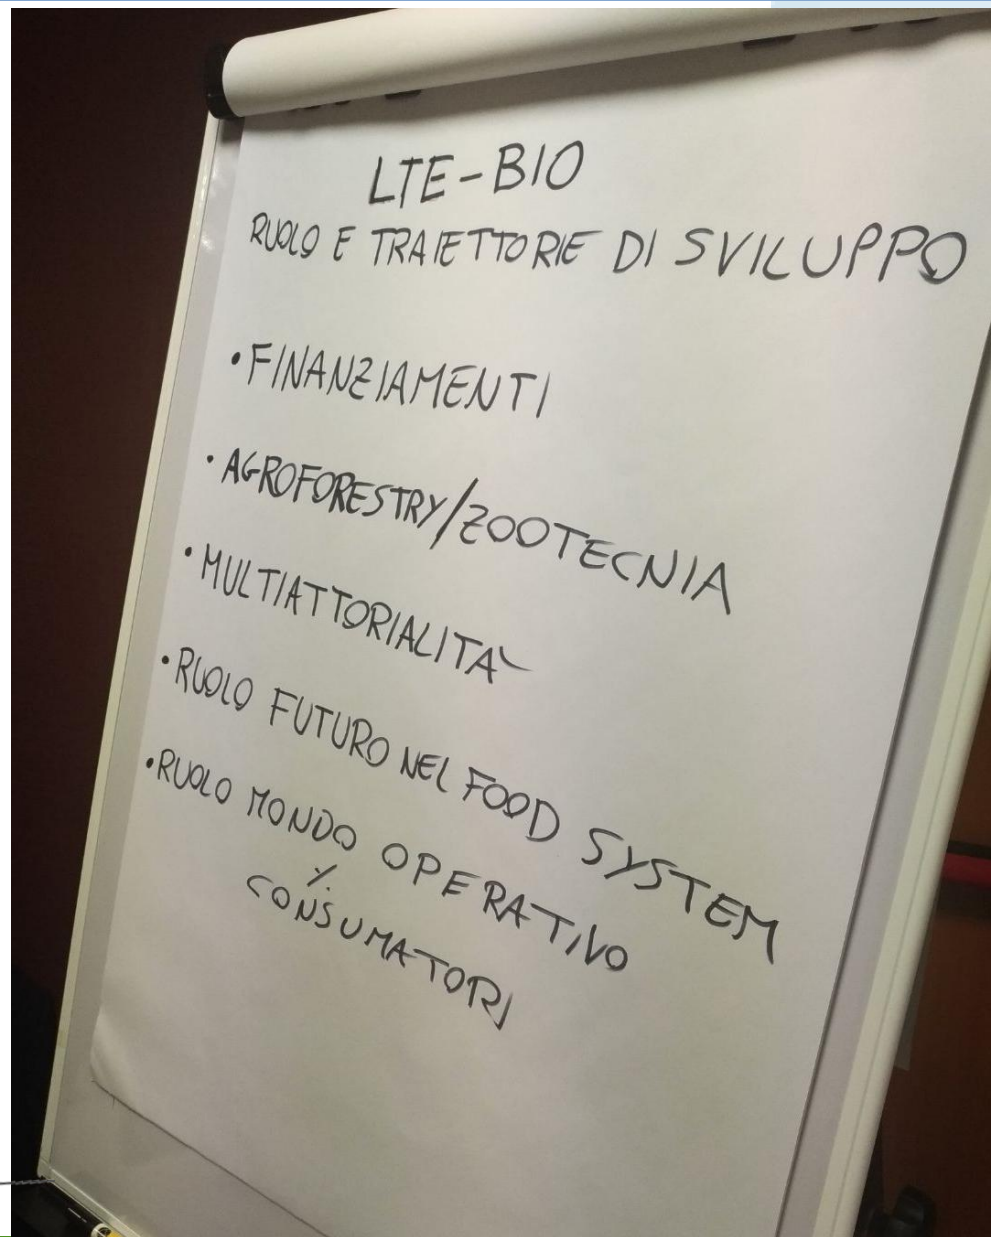 LTE-BIO
RUOLO E TRAIETTORIE DI SVILUPPO
• FINANZIAMENTI
• AGROFORESTRY/ZOOTECNIA
• MULTIATTORIALITÀ
• RUOLO FUTURO NEL FOOD SYSTEM
• RUOLO MONDO OPERATIVO
CONSUMATORI